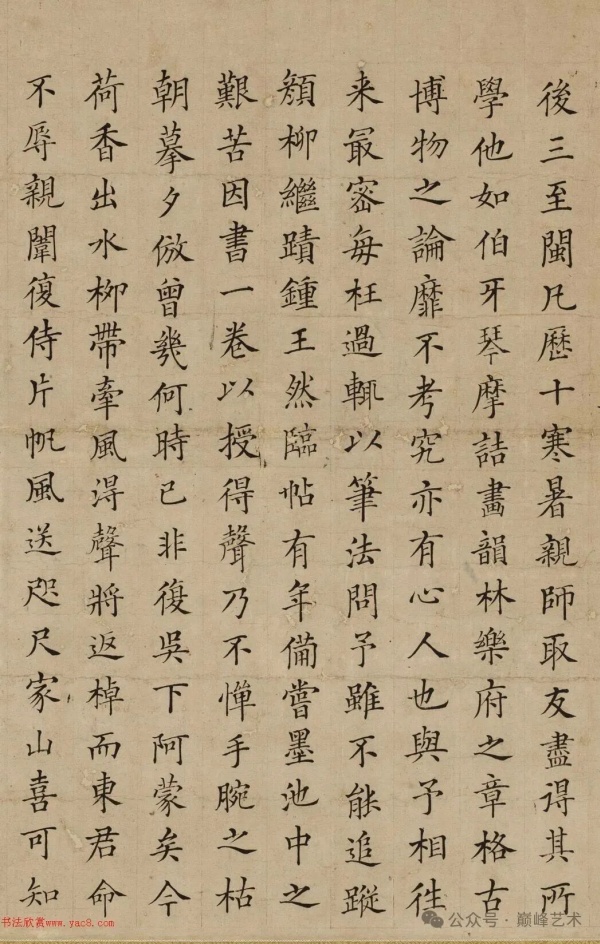 後三至閩凡歷十寒暑親師取友盡得其所
學他如伯牙琴摩詰畫韻林樂府之章格古
博物之論靡不考究亦有心人也與予相徃
来最密每枉過輒以筆法問予雖不能追蹤
顏柳繼蹟鍾王然臨帖有年備嘗墨池中之
艱苦因書一卷以授得聲乃不憚手腕之枯
朝摹夕倣曾幾何時已非復吳下阿蒙矣今
荷香出水柳帶牽風得聲將返棹而東君命
不辱親闈復侍片帆風送咫尺家山喜可知
书法欣赏www.yac8.com
公众号·巅峰艺术